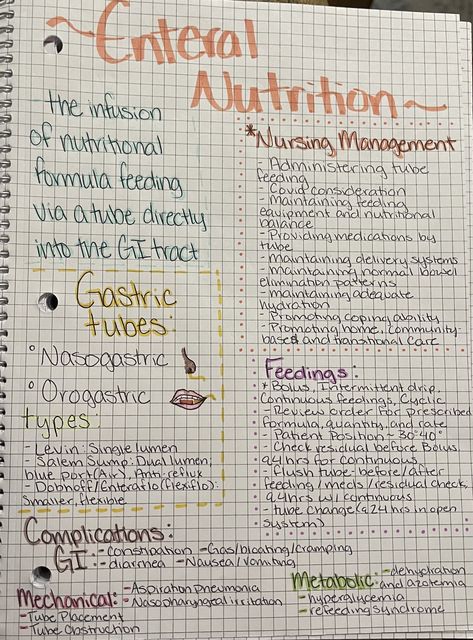 ~Enteral
Nutrition~
the infusion
of nutritional
formula feeding
via a tube directly
into the GI tract
*Nursing Management
- Administering tube
feeding
- Covid consideration
- maintaining feeding
equipment and nutritional
balance
- Providing medications by
tube
- maintaining delivery systems
- maintaining normal bowel
elimination patterns
- maintaining adequate
hydration
- Promoting coping ability
- Promoting home, community-
based and transitional care
Gastric
tubes:
° Nasogastric
° Orogastric
types:
- Levin: Single lumen
- Salem Sump: Dual lumen;
blue port (Air), Anti-reflux
- Dobhoff/Enteraflo (flexiflo):
Smaller, flexible
Feedings:
* Bolus, Intermittent drip,
Continuous feedings, Cyclic
- Review order for prescribed
formula, quantity, and rate
- Patient Position ~ 30°-40°
- Check residual before Bolus,
q4hrs for continuous
- flush tube: before/after
feeding/meds/residual check,
q4hrs w/ continuous
- tube change (q24hrs in open
system)
Complications:
GI: - constipation - Gas/bloating/cramping
- diarrhea - Nausea/Vomiting
Mechanical: - Aspiration pneumonia
- Nasopharyngeal irritation
- Tube Placement
- Tube Obstruction
Metabolic: - dehydration
and azotemia
- hyperglycemia
- refeeding syndrome